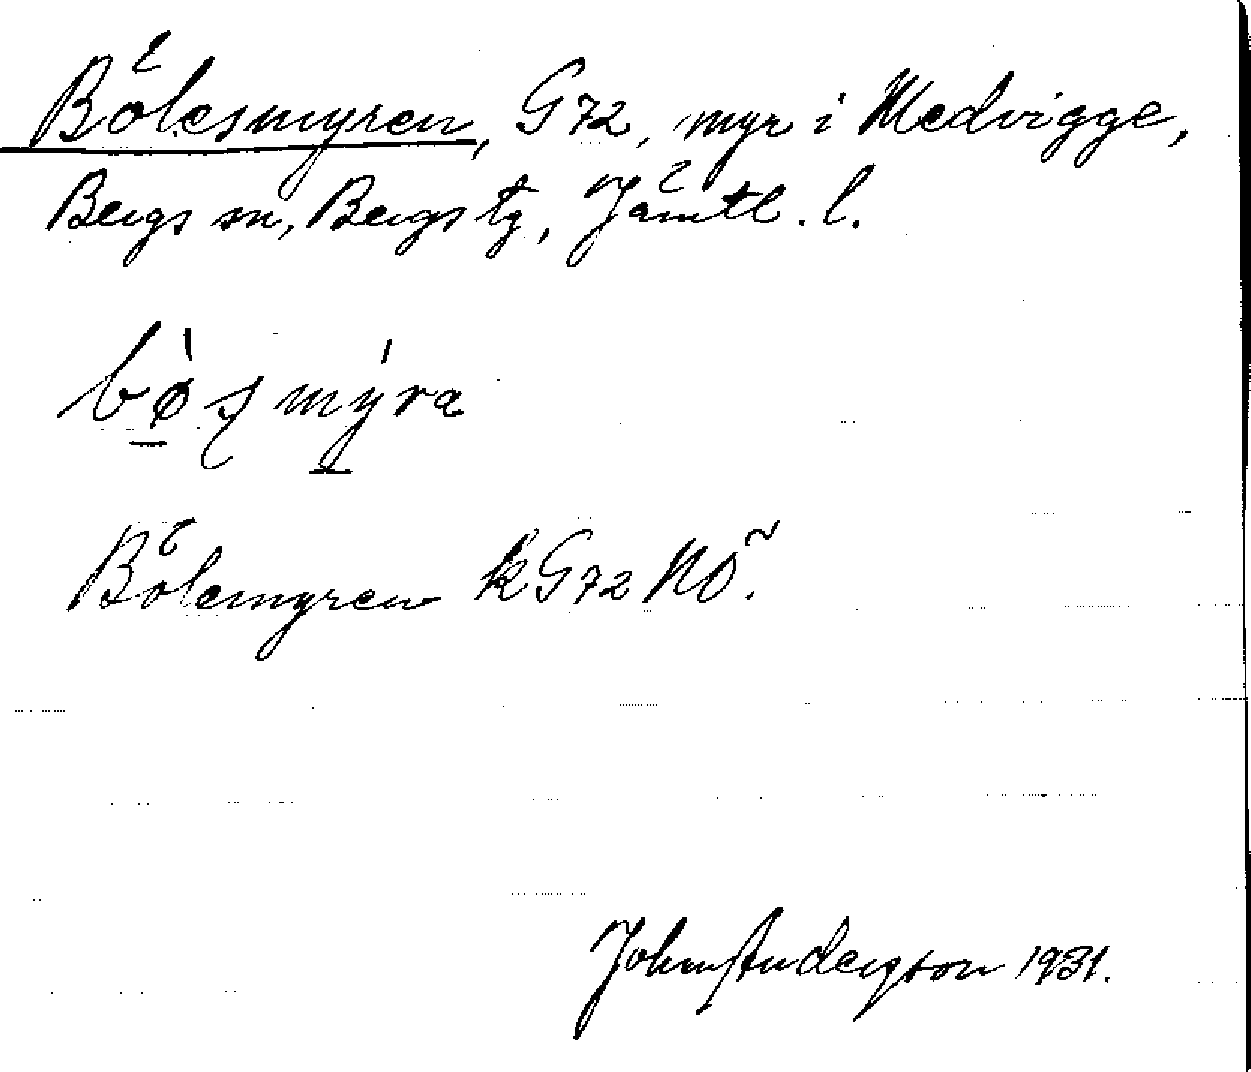 Bölesmyren, G72, myr i Medvigge,
Bergs sn, Bergs tg, Jämtl. l.
bø̀ʂmýra
Bölemyren kG72 NÖ.
John Andersson 1931.